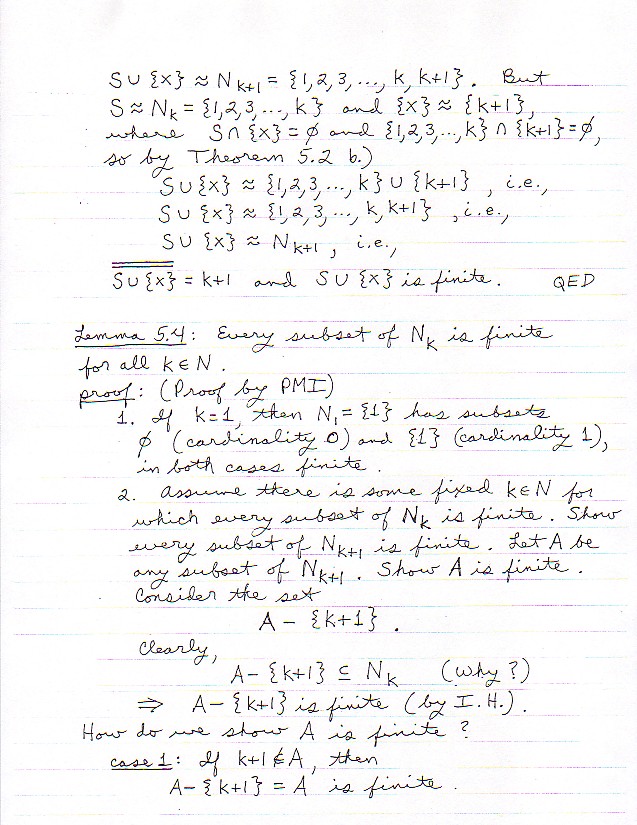 S ∪ {x} ≈ N_{k+1} = {1,2,3,..., k, k+1}. But
S ≈ N_k = {1,2,3,..., k} and {x} ≈ {k+1},
where S ∩ {x} = ∅ and {1,2,3,...,k} ∩ {k+1} = ∅,
so by Theorem 5.2 b.)
S ∪ {x} ≈ {1,2,3,..., k} ∪ {k+1}, i.e.,
S ∪ {x} ≈ {1,2,3,..., k, k+1}, i.e.,
S ∪ {x} ≈ N_{k+1}, i.e.,
S ∪ {x} = k+1 and S ∪ {x} is finite. QED
Lemma 5.4: Every subset of N_k is finite
for all k ∈ N.
proof: (Proof by PMI)
1. If k=1, then N_1 = {1} has subsets
∅ (cardinality 0) and {1} (cardinality 1),
in both cases finite.
2. Assume there is some fixed k ∈ N for
which every subset of N_k is finite. Show
every subset of N_{k+1} is finite. Let A be
any subset of N_{k+1}. Show A is finite.
Consider the set
A - {k+1}.
Clearly,
A - {k+1} ⊆ N_k (why?)
⇒ A - {k+1} is finite (by I.H.).
How do we show A is finite?
case 1: If k+1 ∉ A, then
A - {k+1} = A is finite.